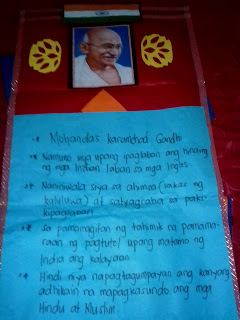 Mohandas Karamchad Gandhi
Namuno siya upang paglaban ang hinaing
ng mga Indian laban sa mga Ingles.
Naniniwala siya sa ahimsa (lakas ng
kaluluwa) at satyagraha sa paki-
kipaglaban
Sa pamamagitan ng tahimik na pamama-
raan ng pagtuto/ upang matamo ng
India ang kalayaan
Hindi niya napagtagumpayan ang kanyang
adhikain na mapagkasundo ang mga
Hindu at Muslim